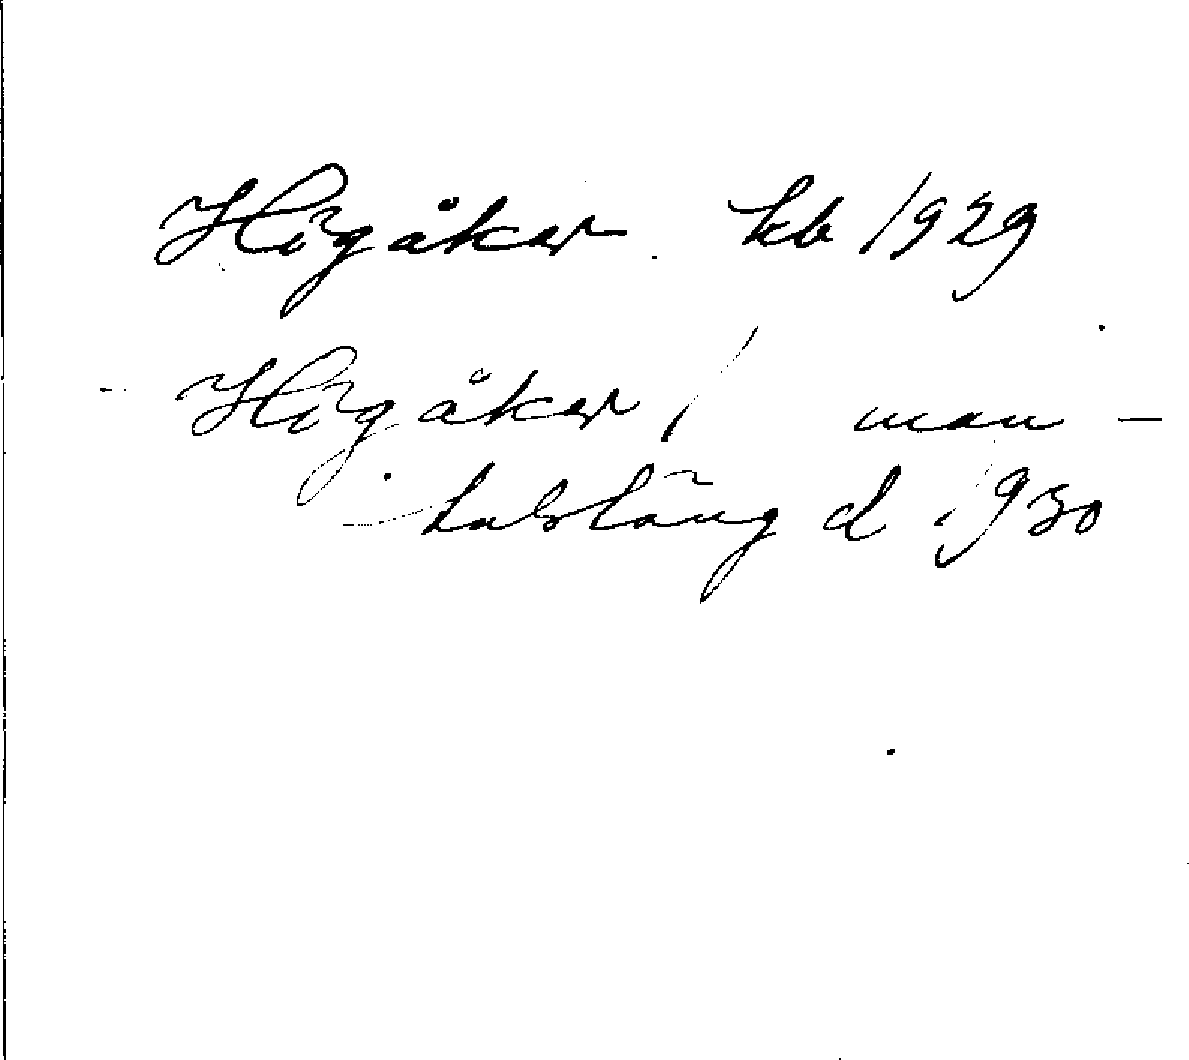 Högåker kb 1929
Högåker / man-
talslängd 1930